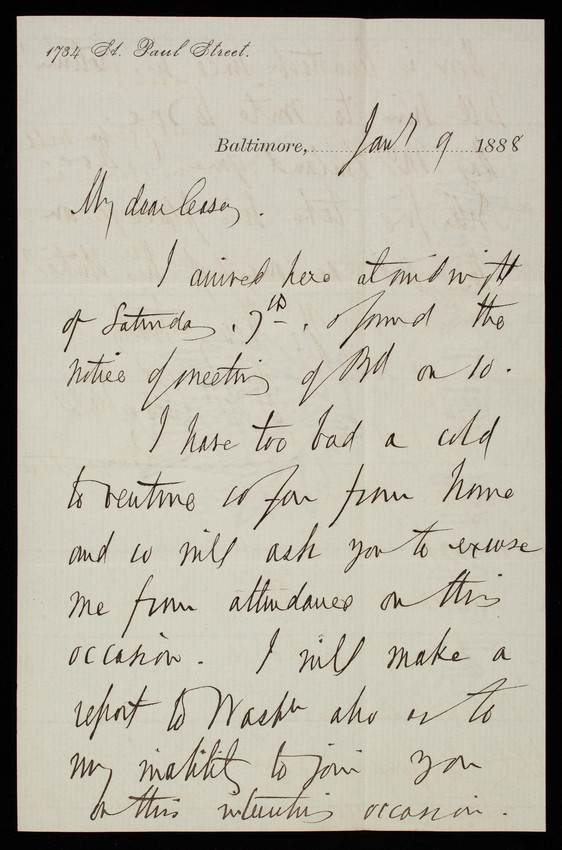 1734 St. Paul Street.
Baltimore, Jany 9 1888
My dear Casey.
I arrived here at midnight
of Saturday, 7th, & found the
notice of meeting of Bd on 10.
I have too bad a cold
to venture so far from home
and so will ask you to excuse
me from attendance on this
occasion. I will make a
report to Washn also as to
my inability to join you
on this interesting occasion.